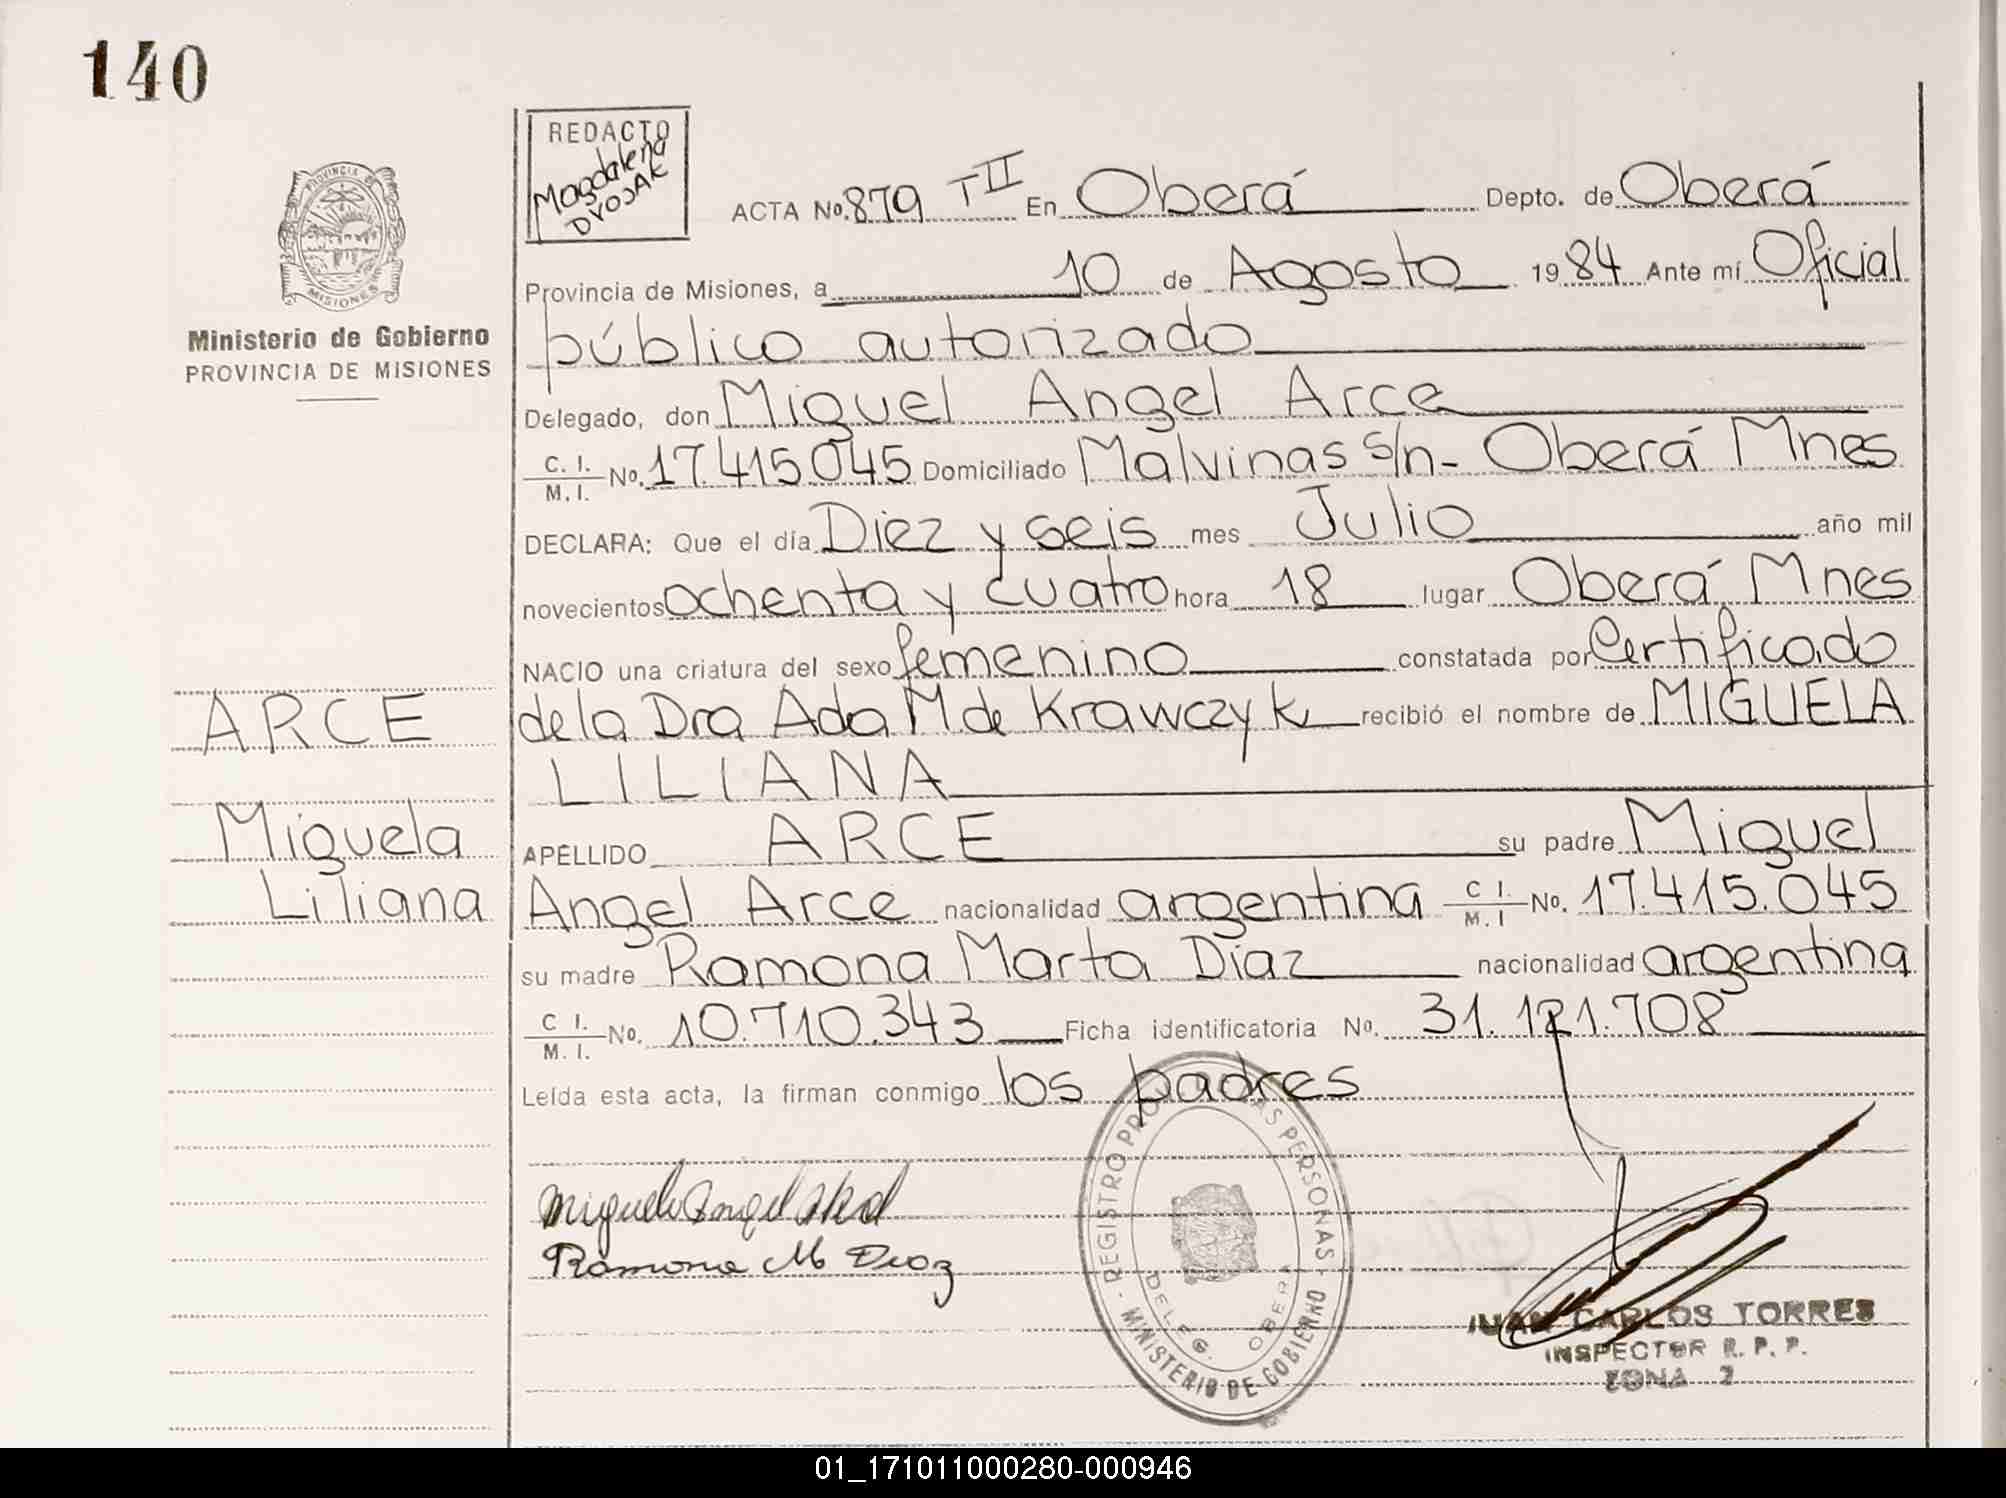 140
REDACTO
Magdalena
DYOJAK
ACTA No. 879 T II En Oberá Depto. de Oberá
PROVINCIA DE
MISIONES
Provincia de Misiones, a 10 de Agosto 1984 Ante mí Oficial
Ministerio de Gobierno
PROVINCIA DE MISIONES
público autorizado
Delegado, don Miguel Angel Arce
C. I. / M. I. No. 17.415.045 Domiciliado Malvinas s/n - Oberá Mnes
DECLARA: Que el día Diez y seis mes Julio año mil
novecientos ochenta y cuatro hora 18 lugar Oberá Mnes
NACIO una criatura del sexo femenino constatada por Certificado
ARCE
de la Dra Ada M. de Krawczyk recibió el nombre de MIGUELA
LILIANA
Miguela
Liliana
APELLIDO ARCE su padre Miguel
Angel Arce nacionalidad argentina C I. / M. I No. 17.415.045
su madre Ramona Marta Diaz nacionalidad argentina
C I. / M. I. No. 10.710.343 Ficha identificatoria No. 31.121.708
Leída esta acta, la firman conmigo los padres
Miguel Angel
Ramona M Diaz
REGISTRO PROV. DE LAS PERSONAS - MINISTERIO DE GOBIERNO -
DELEG. OBERA
JUAN CARLOS TORRES
INSPECTOR R. P. P.
ZONA 2
01_171011000280-000946